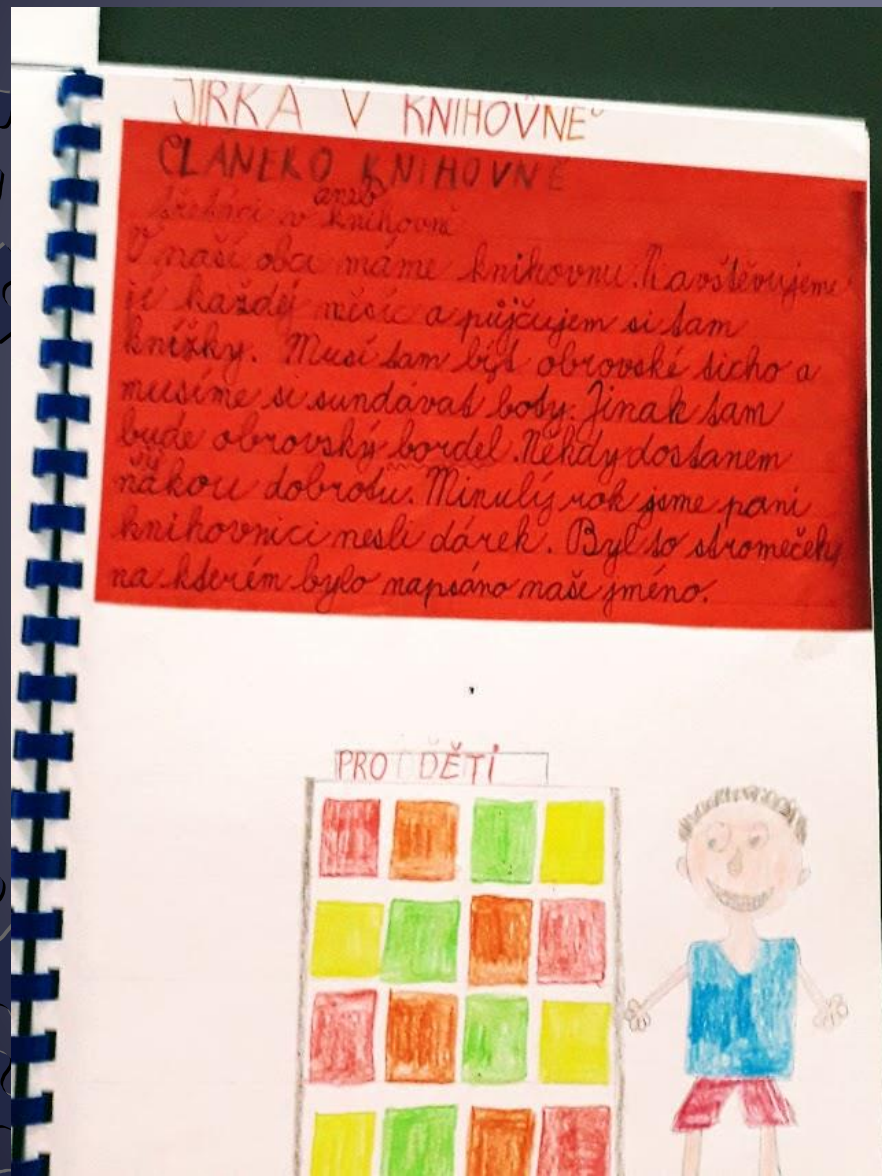 JIRKA V KNIHOVNĚ
ČLÁNEK O KNIHOVNĚ
aneb
třeťáci v knihovně
V naší obci máme knihovnu. Navštěvujeme
ji každej měsíc a půjčujem si tam
knížky. Musí tam být obrovské ticho a
musíme si sundávat boty. Jinak tam
bude obrovský bordel. Někdy dostanem
nákou dobrotu. Minulý rok jsme paní
knihovnici nesli dárek. Byl to stromeček,
na kterém bylo napsáno naše jméno.
PRO DĚTI